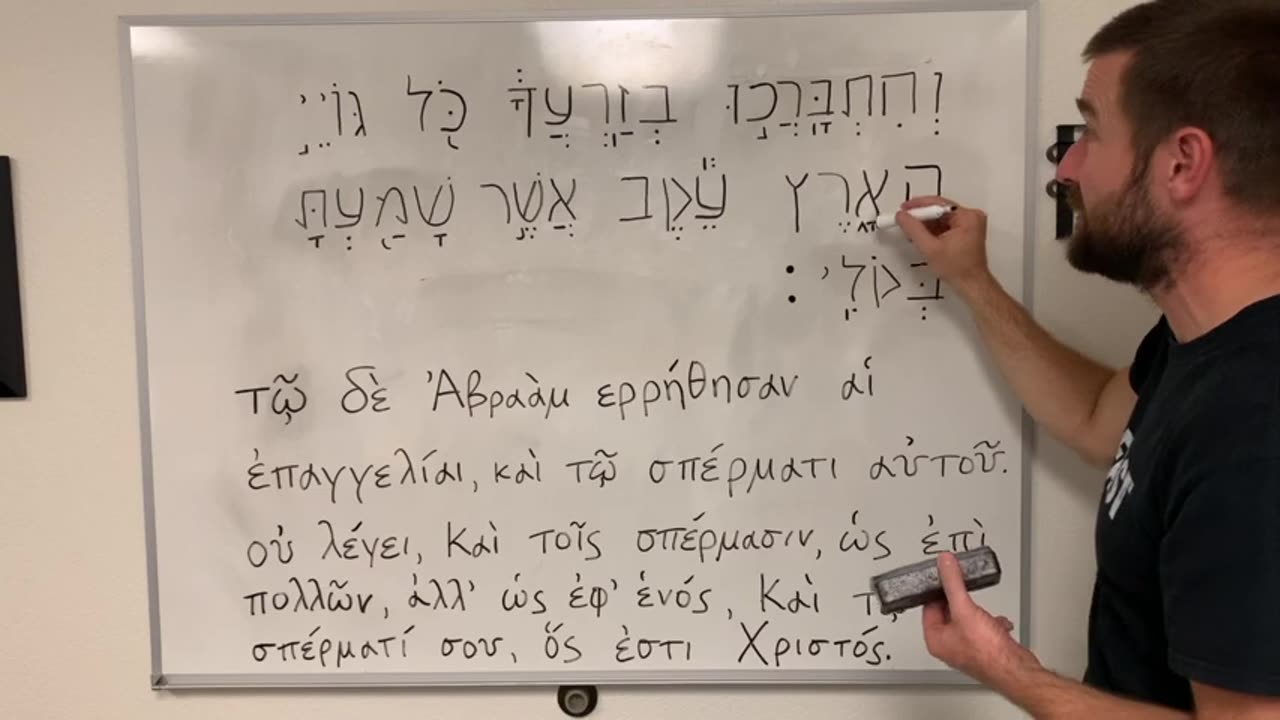 וְהִתְבָּרֲכוּ בְזַרְעֲךָ כֹּל גּוֹיֵי
הָאָרֶץ עֵקֶב אֲשֶׁר שָׁמַעְתָּ
בְּקוֹלִי׃
τῷ δὲ Ἀβραὰμ ερρήθησαν αἱ
ἐπαγγελίαι, καὶ τῷ σπέρματι αὐτοῦ.
οὐ λέγει, Καὶ τοῖς σπέρμασιν, ὡς ἐπὶ
πολλῶν, ἀλλ' ὡς ἐφ' ἑνός, Καὶ
σπέρματί σου, ὅς ἐστι Χριστός.